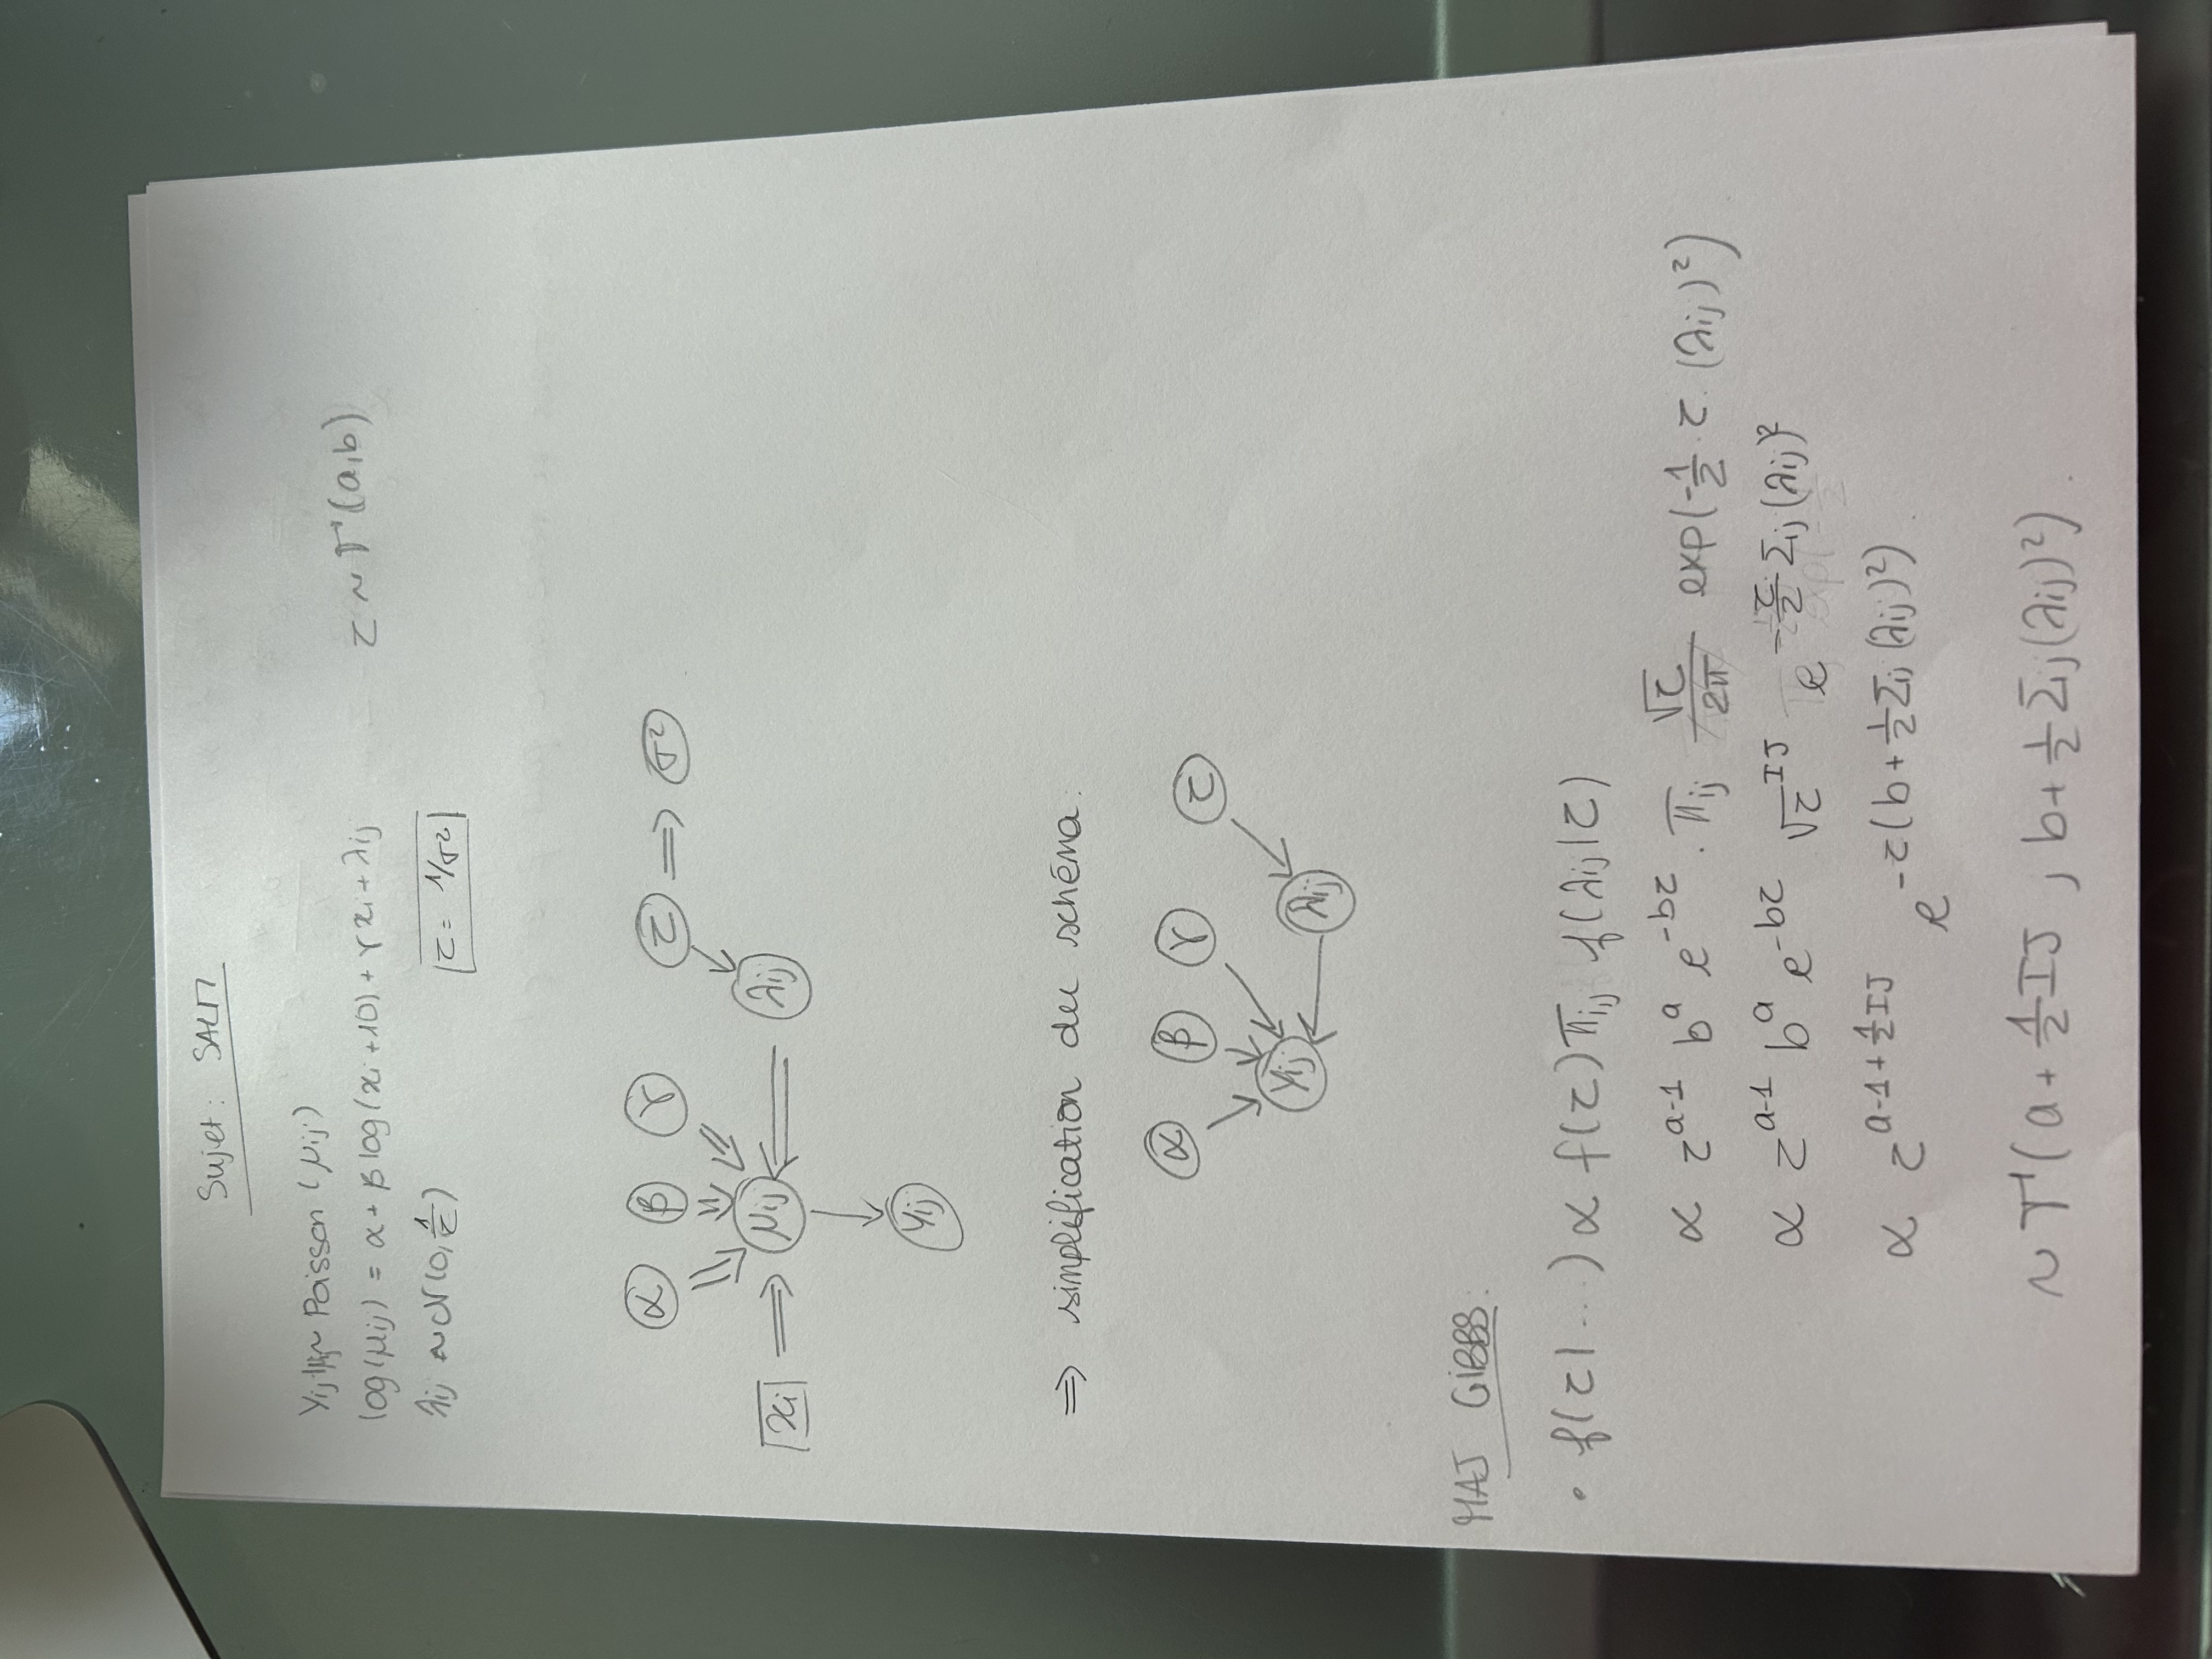 Sujet : SALM
Yij|μij ~ Poisson (μij)
log(μij) = α + β log(xi + 10) + γ xi + λij
τ ~ Γ(a,b)
λij ~ N(0, 1/τ)
τ = 1/σ²
α β γ τ ⇒ σ²
xi ⇒ μij ⇐ λij
Yij
⇒ simplification du schéma :
α β γ τ
Yij ← λij
MAJ GIBBS :
• f(τ|...) ∝ f(τ) πij f(λij|τ)
∝ τ^(a-1) b^a e^(-bτ) . πij √τ/2π exp(-1/2 . τ . (λij)²)
∝ τ^(a-1) b^a e^(-bτ) √τ^IJ e^(-τ/2 Σij (λij)²)
∝ τ^(a-1+1/2 IJ) e^(-τ(b + 1/2 Σij (λij)²)).
~ Γ(a + 1/2 IJ , b + 1/2 Σij (λij)²).